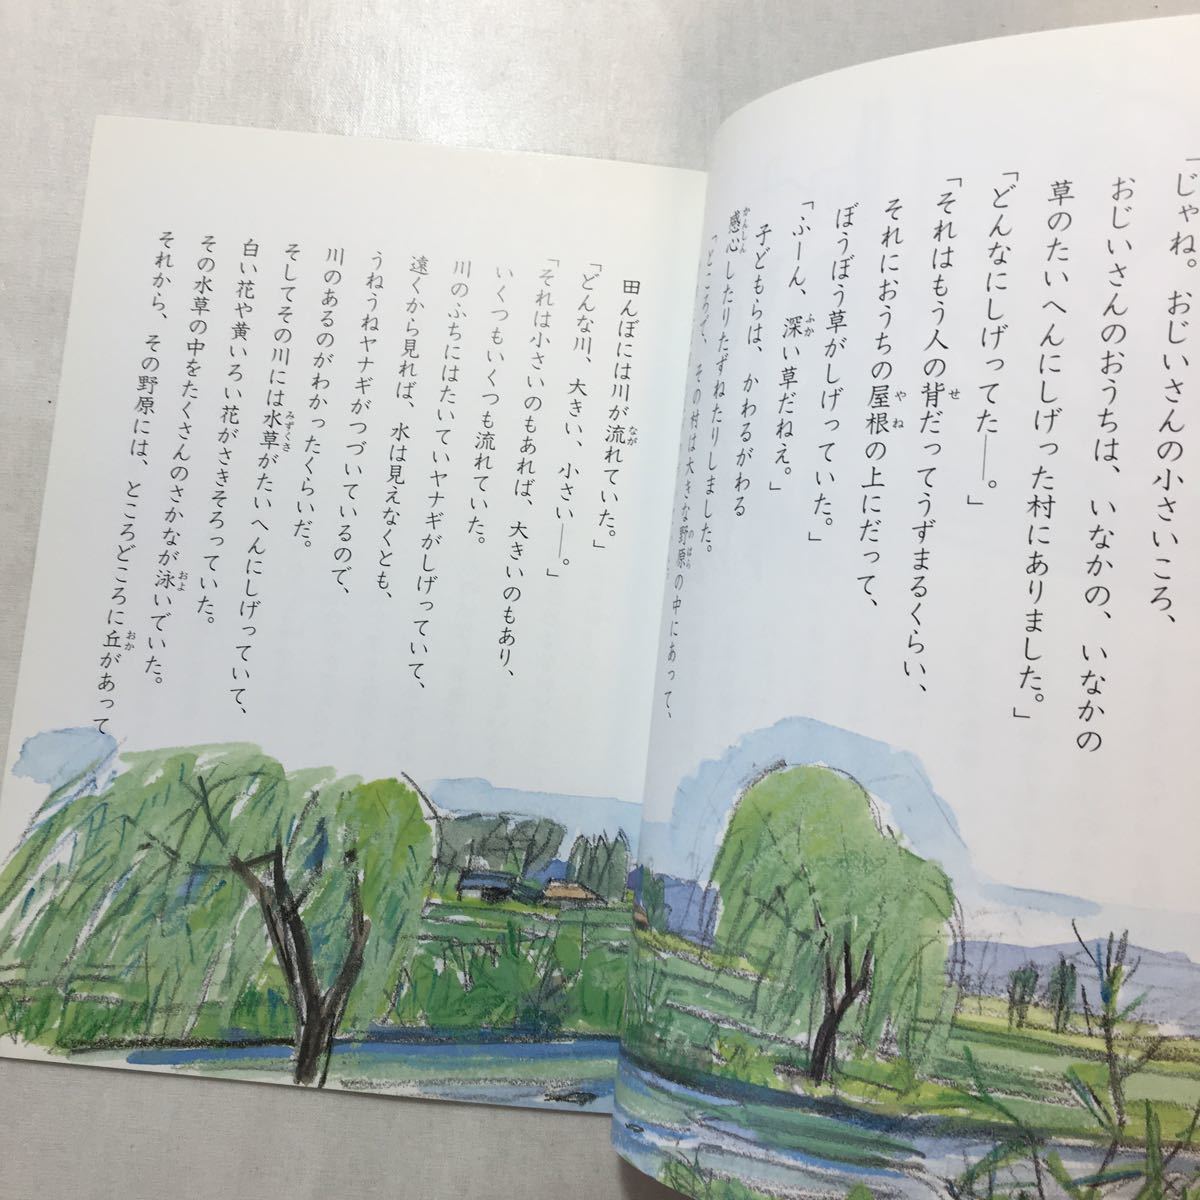 「じゃね。おじいさんの小さいころ、
おじいさんのおうちは、いなかの、いなかの
草のたいへんにしげった村にありました。」
「どんなにしげってた——。」
「それはもう人の背だってうずまるくらい、
それにおうちの屋根の上にだって、
ぼうぼう草がしげっていた。」
「ふーん、深い草だねえ。」
子どもらは、かわるがわる
感心したりたずねたりしました。
「ところで、その村は大きな野原の中にあって、
田んぼには川が流れていた。」
「どんな川、大きい、小さい——。」
「それは小さいのもあれば、大きいのもあり、
いくつもいくつも流れていた。
川のふちにはたいていヤナギがしげっていて、
遠くから見れば、水は見えなくとも、
うねうねヤナギがつづいているので、
川のあるのがわかったくらいだ。
そしてその川には水草がたいへんにしげっていて、
白い花や黄いろい花がさきそろっていた。
その水草の中をたくさんのさかなが泳いでいた。
それから、その野原には、ところどころに丘があって